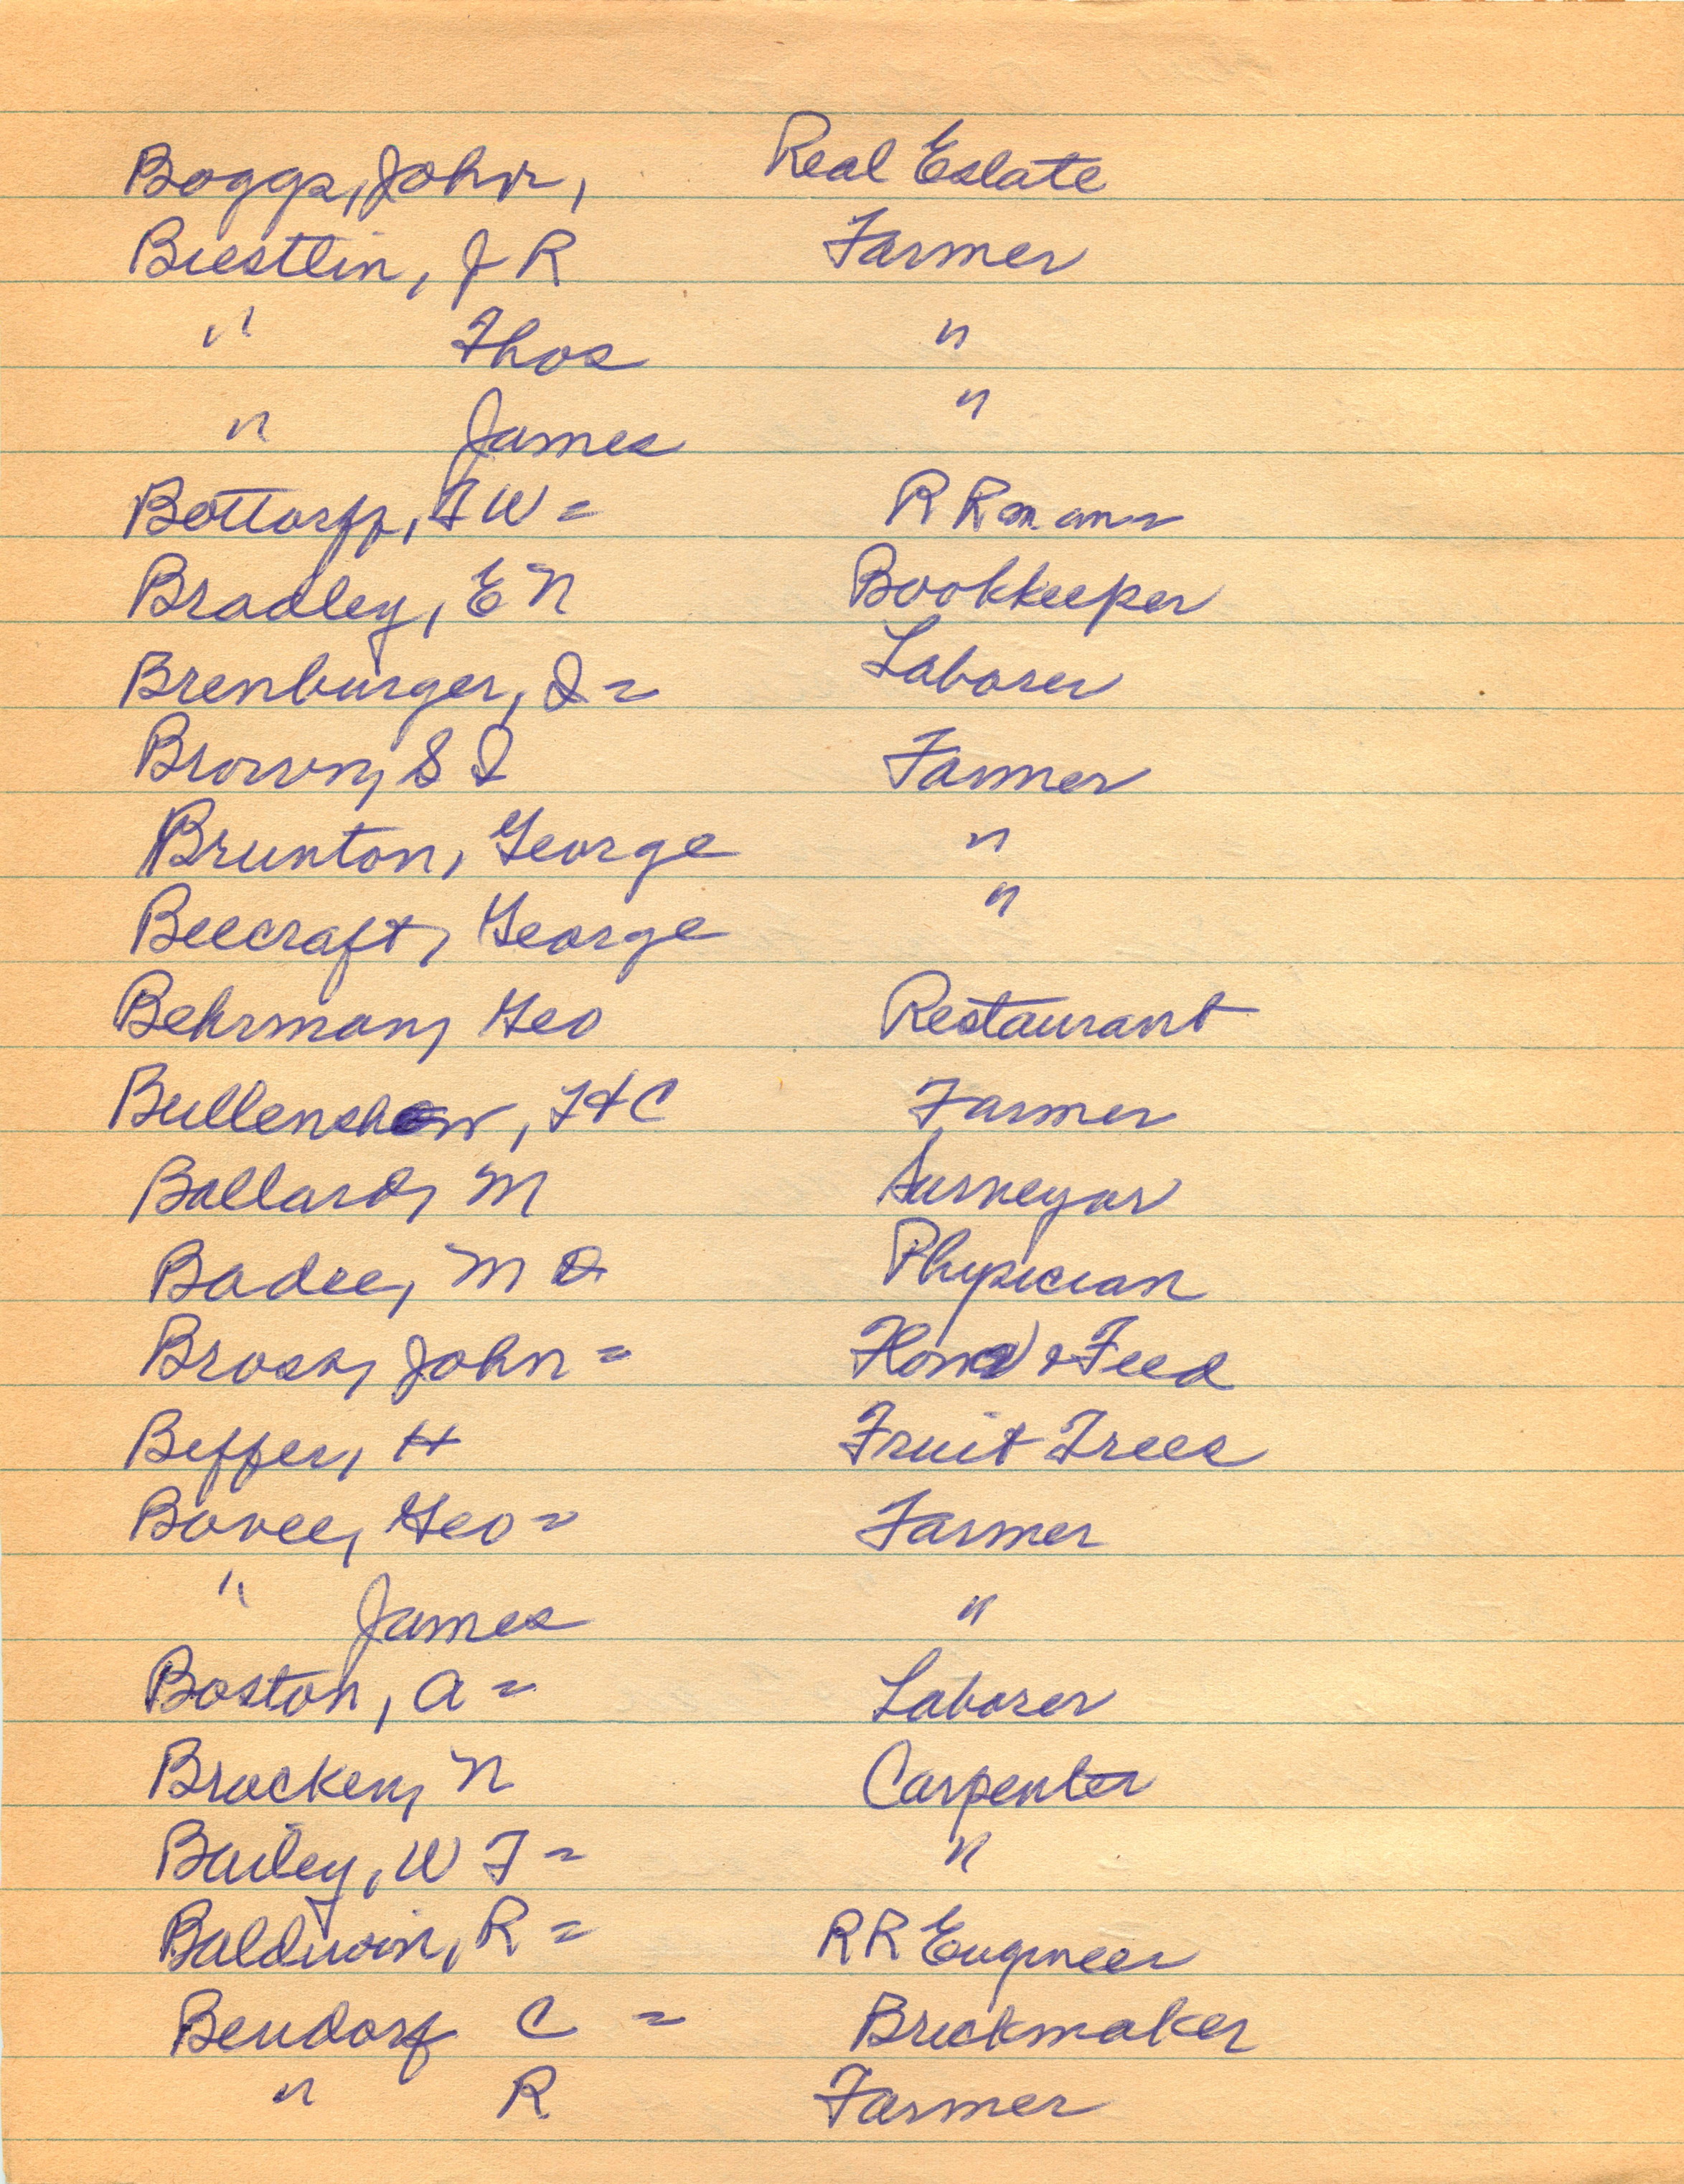 Boggs, John, Real Estate
Biestlin, J R Farmer
" Thos "
" James "
Bottorff, F W = R R man
Bradley, E N Bookkeeper
Brenburger, I = Laborer
Brown, S I Farmer
Brunton, George "
Beecraft, George "
Behrman, Geo Restaurant
Bullenshaw, H C Farmer
Ballard, M Surveyor
Badee, M D Physician
Bross, John = Flour & Feed
Beffer, H Fruit Trees
Bovee, Geo = Farmer
" James "
Boston, A = Laborer
Bracken, N Carpenter
Bailey, W T = "
Baldwin, R = R R Engineer
Bendorf C = Brickmaker
" R Farmer